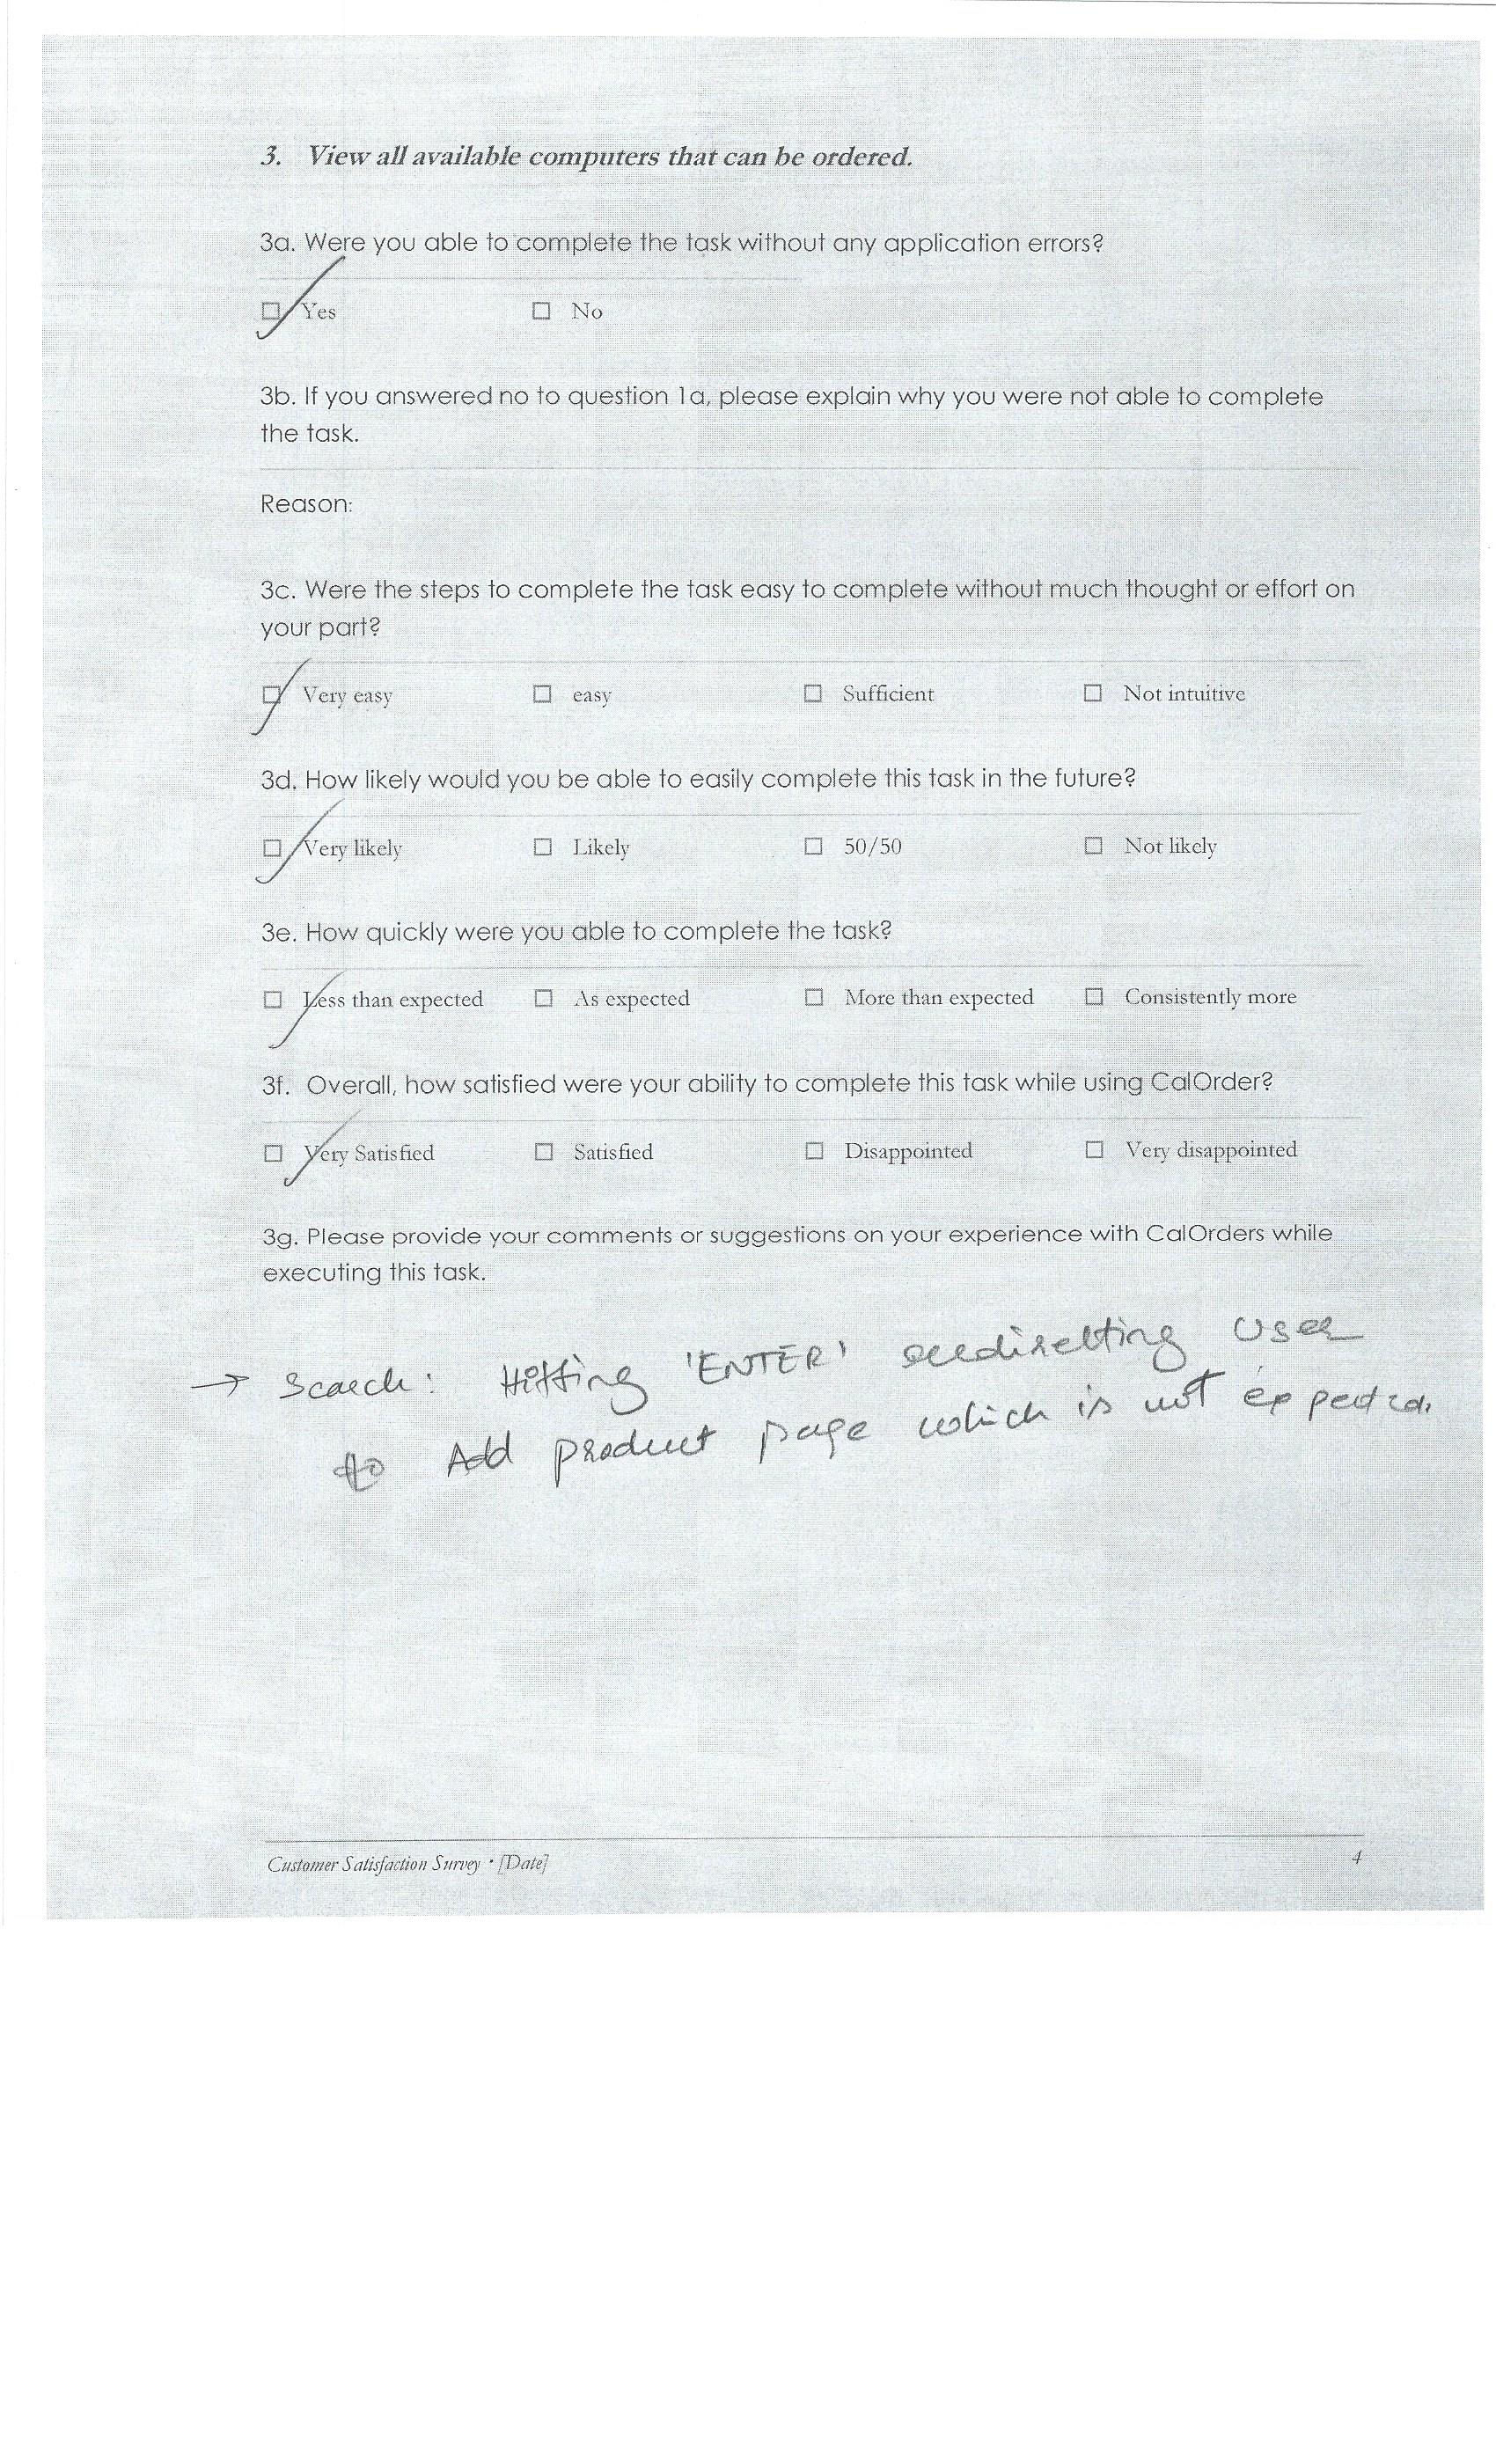 3. View all available computers that can be ordered.
3a. Were you able to complete the task without any application errors?
☐ Yes ☐ No
3b. If you answered no to question 1a, please explain why you were not able to complete
the task.
Reason:
3c. Were the steps to complete the task easy to complete without much thought or effort on
your part?
☐ Very easy ☐ easy ☐ Sufficient ☐ Not intuitive
3d. How likely would you be able to easily complete this task in the future?
☐ Very likely ☐ Likely ☐ 50/50 ☐ Not likely
3e. How quickly were you able to complete the task?
☐ Less than expected ☐ As expected ☐ More than expected ☐ Consistently more
3f. Overall, how satisfied were your ability to complete this task while using CalOrder?
☐ Very Satisfied ☐ Satisfied ☐ Disappointed ☐ Very disappointed
3g. Please provide your comments or suggestions on your experience with CalOrders while
executing this task.
→ Search: Hitting 'ENTER' redirecting User
to Add product page which is not expected.
Customer Satisfaction Survey • [Date] 4